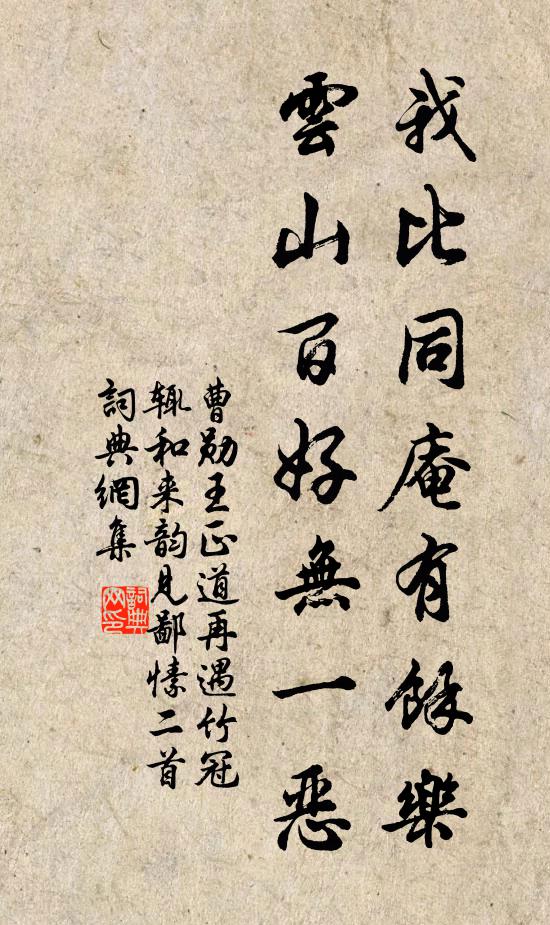 我比同庵有餘樂
雲山百好無一惡
曹勛王正道再遇竹冠
輒和来韵見鄙愫二首
詞典網集
詞典网印